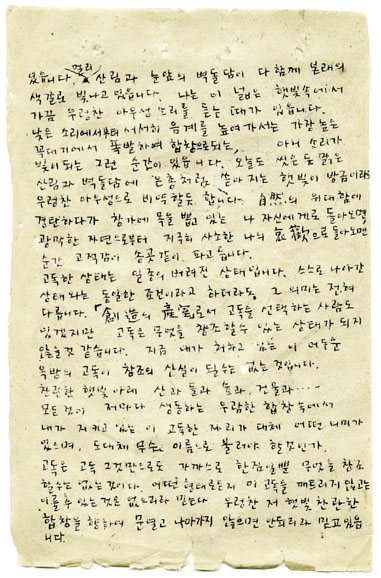 멀리
있습니다. 산림과 눈앞의 벽돌담이 다 함께 본래의
색갈로 빛나고 있읍니다. 나는 이 넓은 햇빛속에서
가끔 우렁찬 아우성 소리를 듣는 때가 있읍니다.
낮은 소리에서부터 서서히 음계를 높여가서는 가장 높은
꼭대기에서 폭발하여 합창으로 되는, 아니 소리가
빛이 되는 그런 순간이 있읍니다. 오늘도 씻은 듯 맑은
산림과 벽돌담에 은총처럼 쏟아지는 햇빛이 방금이라도
우렁찬 아우성으로 비약할듯 합니다. 自然의 위대함에
경탄하다가 창가에 몸을 뻗고 있는 나 자신에게로 돌아오면
광막한 자연으로부터 지극히 사소한 나의 로 돌아오면
순간 고적감이 송곳같이 파고 듭니다.
고독한 상태는 일종의 버려진 상태입니다. 스스로 나아간
상태와는 동일한 조건이라고 하더라도 그 의미는 전혀
다릅니다. 「創造의 産室」로서 고독을 선택하는 사람도
있겠지만 고독은 무엇을 창조할수 있는 상태가 되지
않을것 같습니다. 지금 내가 처하고 있는 이 어두운
육방의 고독이 창조의 산실이 될수는 없는 것입니다.
찬란한 햇빛 아래 산과 들과 숲과, 건물과……
모든것이 저마다 생동하는 우람한 합창속에서
내가 지키고 있는 이 고독한 자리가 대체 어떤 의미가
있으며, 도대체 무슨 이름으로 불러야 할 것인가.
고독은 고독 그것만으로도 가까스로 한짐일뿐 무엇을 창조
할수는 없는 것이다. 어떤 형태로든지 이 고독을 깨뜨리지 않고는
이룰 수 있는 것은 없으리라 믿는다. 우렁찬 저 햇빛 찬란한
합창을 향하여 문열고 나아가지 않으면 안되리라 믿고 있읍
니다.